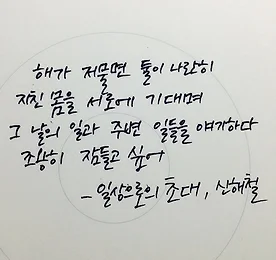 해가 저물면 둘이 나란히
지친 몸을 서로에 기대며
그 날의 일과 주변 일들을 얘기하다
조용히 잠들고 싶어
- 일상으로의 초대, 신해철